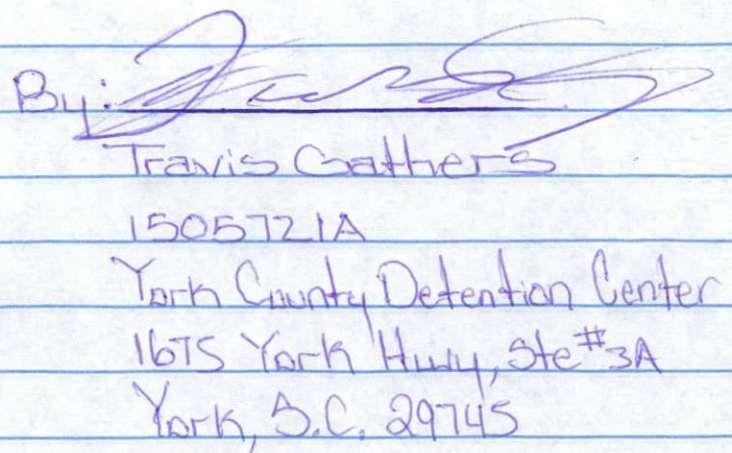 By:
Travis Gathers
1505721A
York County Detention Center
1675 York Hwy, Ste #3A
York, S.C. 29745